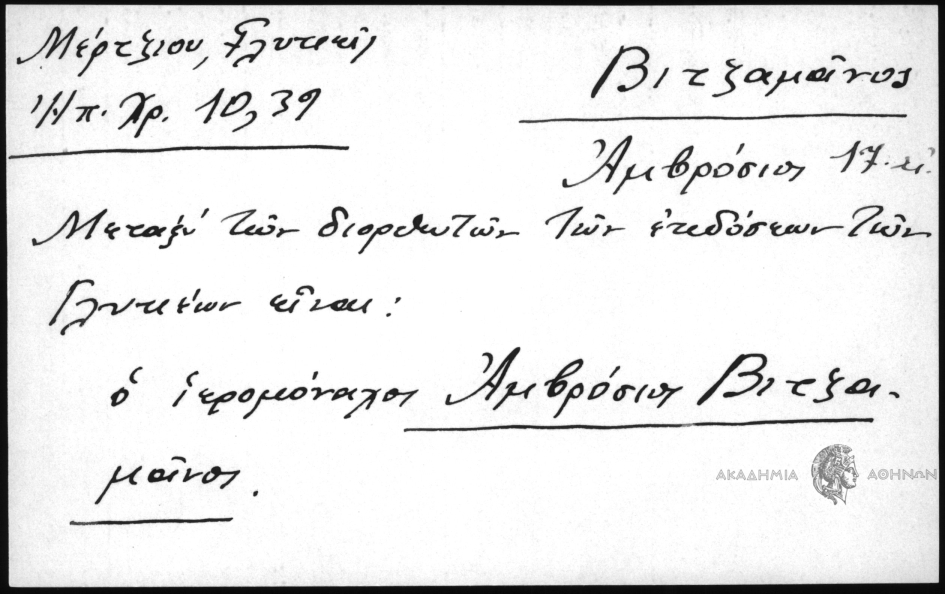 Μέρτζιου, Γλυκεῖς
Ἠπ. Χρ. 10, 39
Βιτζαμᾶνος
Ἀμβρόσιος 17. αἰ.
Μεταξὺ τῶν διορθωτῶν τῶν ἐκδόσεων τῶν
Γλυκέων εἶναι:
ὁ ἱερομόναχος Ἀμβρόσιος Βιτζα-
μᾶνος.
ΑΚΑΔΗΜΙΑ ΑΘΗΝΩΝ